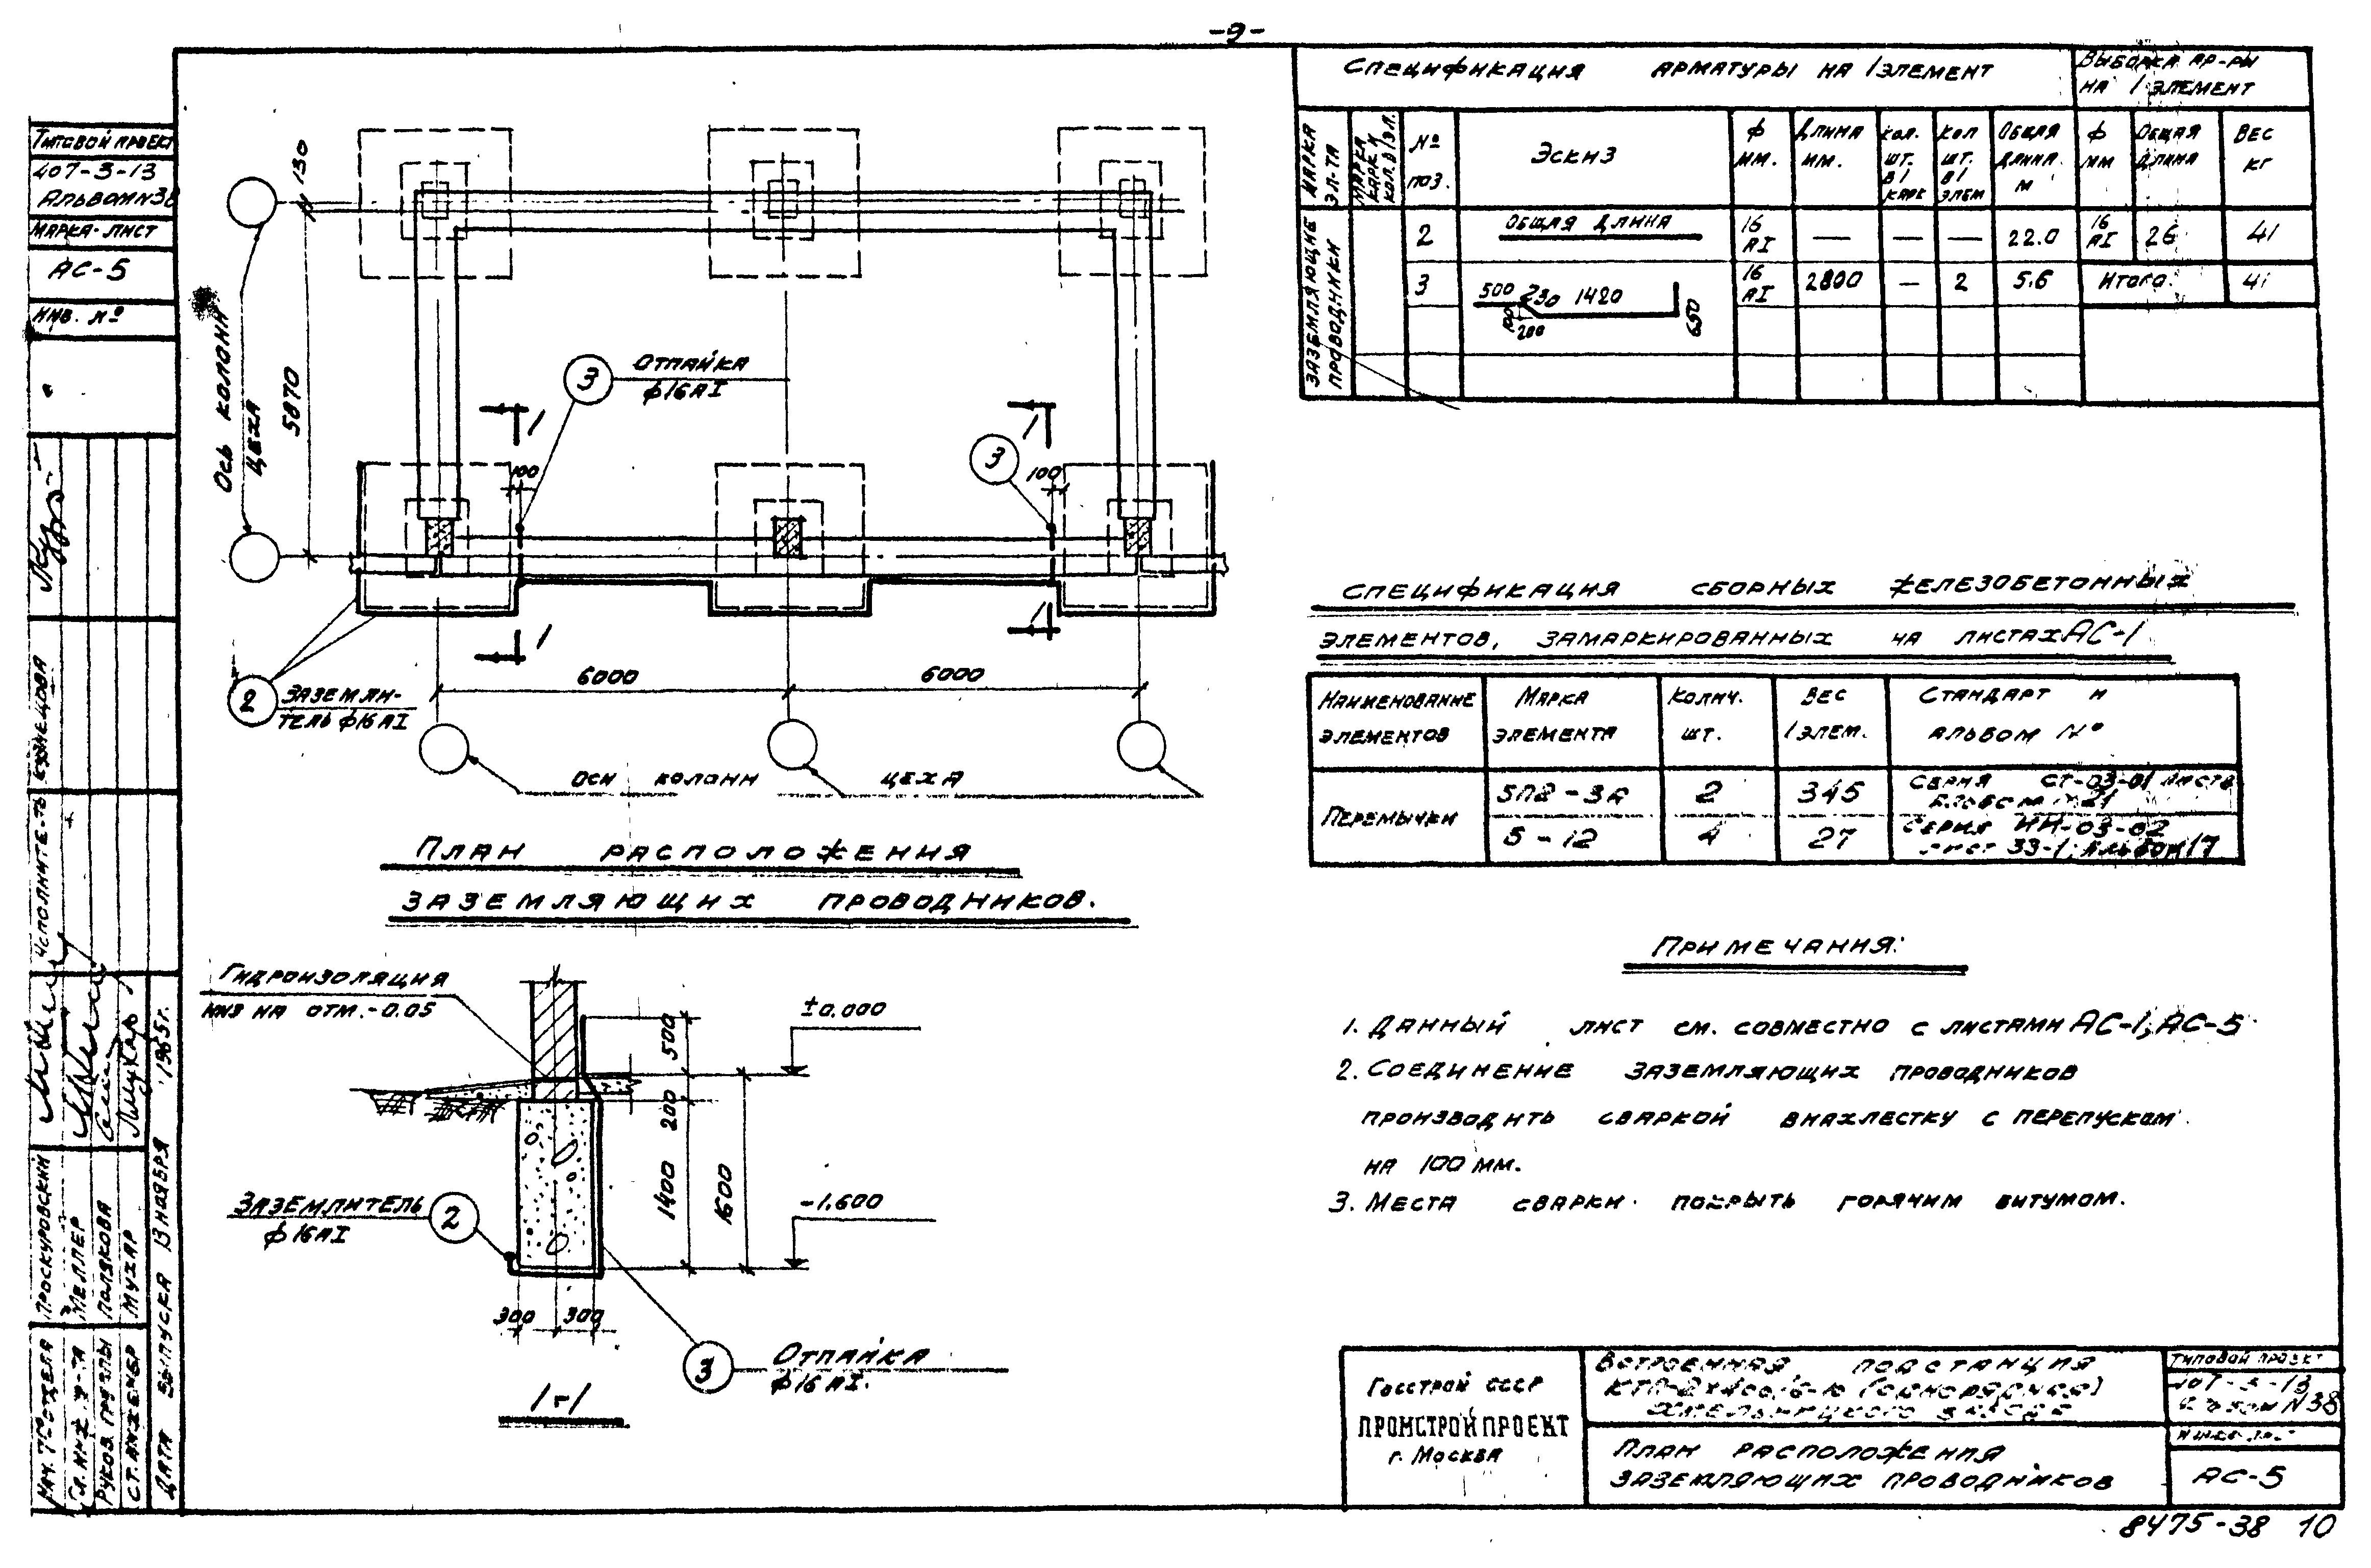 -9-
Типовой проект
407-3-13
Альбом N38
Марка-лист
АС-5
Инв. №
130
5870
Ось колонн
цеха
3
Отпайка
ф16АI
1
1
3
100
100
1
1
2
Заземли-
тель ф16АI
6000
6000
Оси колонн цеха
План расположения
заземляющих проводников.
Гидроизоляция
низ на отм. -0.05
±0.000
500
200
1400
1600
-1.600
Заземлитель
ф16АI
2
300
300
3
Отпайка
ф16АI.
1-1
Спецификация арматуры на 1 элемент
Выборка ар-ры
на 1 элемент
Марка эл-та
Марка карк и кол. в 1 эл.
№ поз.
Эскиз
ф мм.
Длина мм.
Кол. шт. в 1 карк
Кол шт. в 1 элем
Общая длина м
ф мм
Общая длина
Вес кг
Заземляющие проводники
2
Общая длина
16 АI
—
—
—
22.0
16 АI
26
41
3
500
230
1420
100
200
650
16 АI
2800
—
2
5.6
Итого:
41
Спецификация сборных железобетонных
элементов, замаркированных на листах АС-1
Наименование элементов
Марка элемента
Колич. шт.
Вес 1 элем.
Стандарт и альбом №
Перемычки
5П2-3А
2
345
Серия СТ-03-01
Б-12
4
27
Серия ИИ-03-02
лист 33-1, Альбом 17
Примечания:
1. Данный лист см. совместно с листами АС-1, АС-5
2. Соединение заземляющих проводников
производить сваркой внахлестку с перепуском
на 100 мм.
3. Места сварки покрыть горячим битумом.
Госстрой СССР
ПРОМСТРОЙПРОЕКТ
г. Москва
Встроенная подстанция
План расположения
заземляющих проводников
Типовой проект
407-3-13
Альбом N38
АС-5
8475-38 10
Кузнецова
Исполнитель
Проскуровский
Меллер
Полякова
Мухар
Нач. отдела
Гл. инж. пр-та
Руков. группы
Ст. инженер
Дата выпуска 13 ноября 1965г.